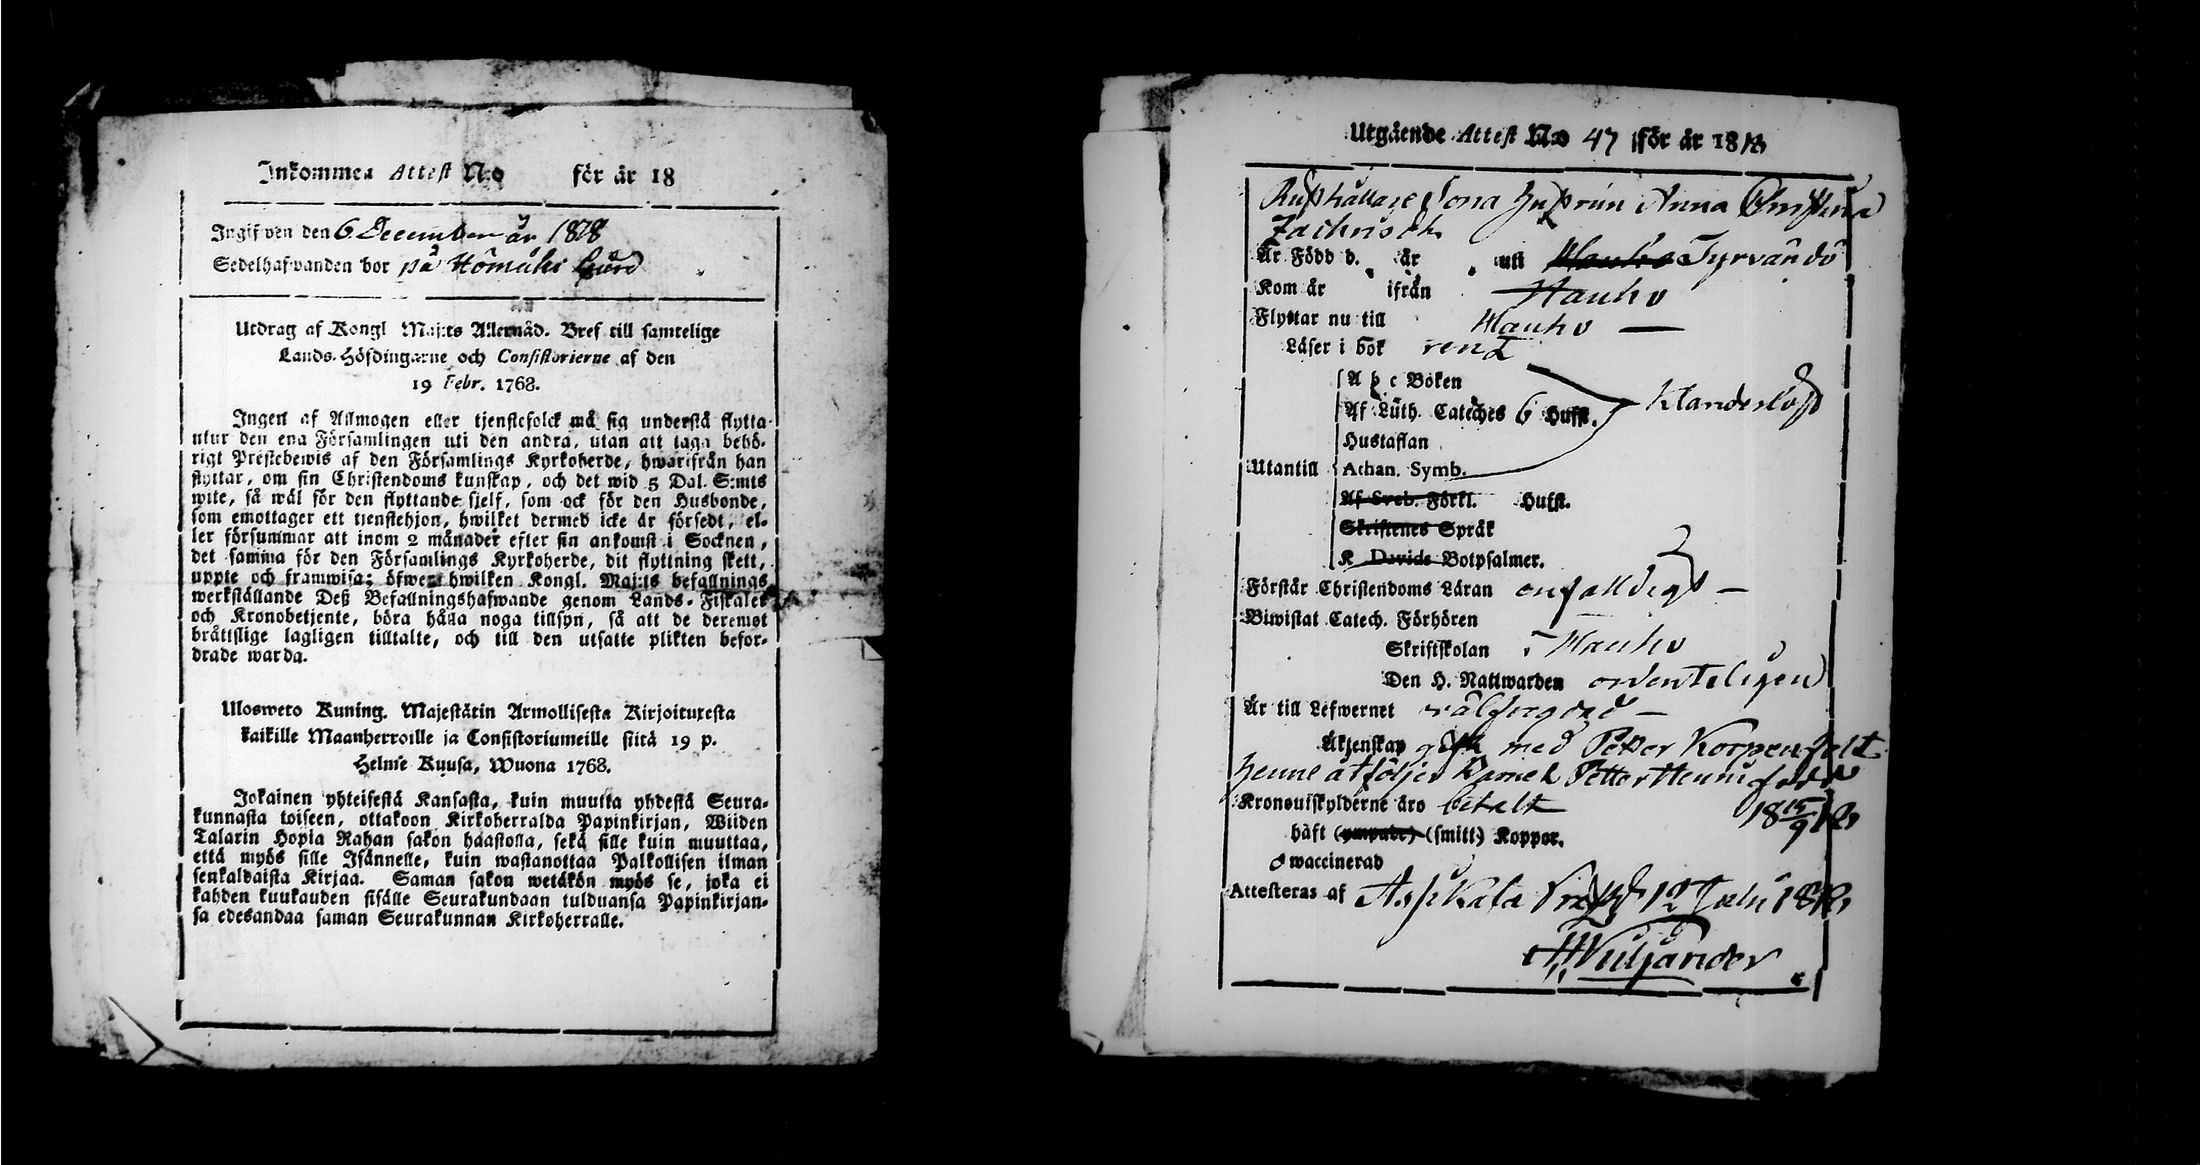 Inkommen Attest N:o för år 18
Ingifven den 6 December år 1828
Sedelhafvanden bor på
Utdrag af Kongl Maj:ts Allernåd. Bref till samtelige
Lands-Höfdingarne och Consistorierne af den
19 Febr. 1768.
Ingen af Allmogen eller tjenstefolck må sig understå flytta
utur den ena Församlingen uti den andra, utan att taga behö-
rigt Prestebewis af den Församlings Kyrkoherde, hwarifrån han
flyttar, om sin Christendoms kunskap, och det wid 5 Dal. S:mts
wite, så wäl för den flyttande sjelf, som ock för den Husbonde,
som emottager ett tjenstehjon, hwilket dermed icke är försedt, el-
ler försummar att inom 2 månader efter sin ankomst i Socknen,
det samma för den Församlings Kyrkoherde, dit flyttning skett,
uppte och framwisa; öfwer hwilken Kongl. Maj:ts befallnings
werkställande Deß Befallningshafwande genom Lands-Fiskaler
och Kronobetjente, böra hålla noga tillsyn, så att de deremot
bråttslige lagligen tilltalte, och till den utsatte plikten befor-
drade warda.
Ulosweto Kuning. Majestätin Armollisesta Kirjoituresta
kaikille Maanherroille ja Consistoriumeille siitä 19 p.
Helme Kuusa, Wuona 1768.
Jokainen yhteisestä Kansasta, kuin muutta yhdestä Seura-
kunnasta toiseen, ottakoon Kirkoherralda Papinkirjan, Wiiden
Talarin Hopia Rahan sakon haastolla, sekä sille kuin muuttaa,
että myös sille Isännelle, kuin wastanottaa Palkollisen ilman
senkaldaista Kirjaa. Saman sakon wetäkön myös se, joka ei
kahden kuukauden sisälle Seurakundaan tulduansa Papinkirjan-
sa edesandaa saman Seurakunnan Kirkoherralle.
Utgående Attest N:o 47 för år 18
Anna Christina
Är Född d. år uti Hauho Tyrvändö
Kom år ifrån Hauho
Flyttar nu till Hauho
Läser i bok rent
A b c Boken
Af Luth. Cateches 6 Hufst.
Klanderlöst
Hustaflan
Utantill Athan. Symb.
Af Sveb. Förkl. Hufst.
Skriftenes Språk
K Davids Botpsalmer.
Förstår Christendoms Läran enfalldigt
Biwistat Catech. Förhören
Skriftskolan i Hauho
Den H. Nattwarden ordenteligen
Är till Lefwernet välfrägdad
Äkjenskap gift med Petter
henne åtföljer Barnet Petter Henric född
Kronoutskylderne äro betalt 18 15/9
häft (ympade) (smitt) Koppor.
waccinerad
Attesteras af